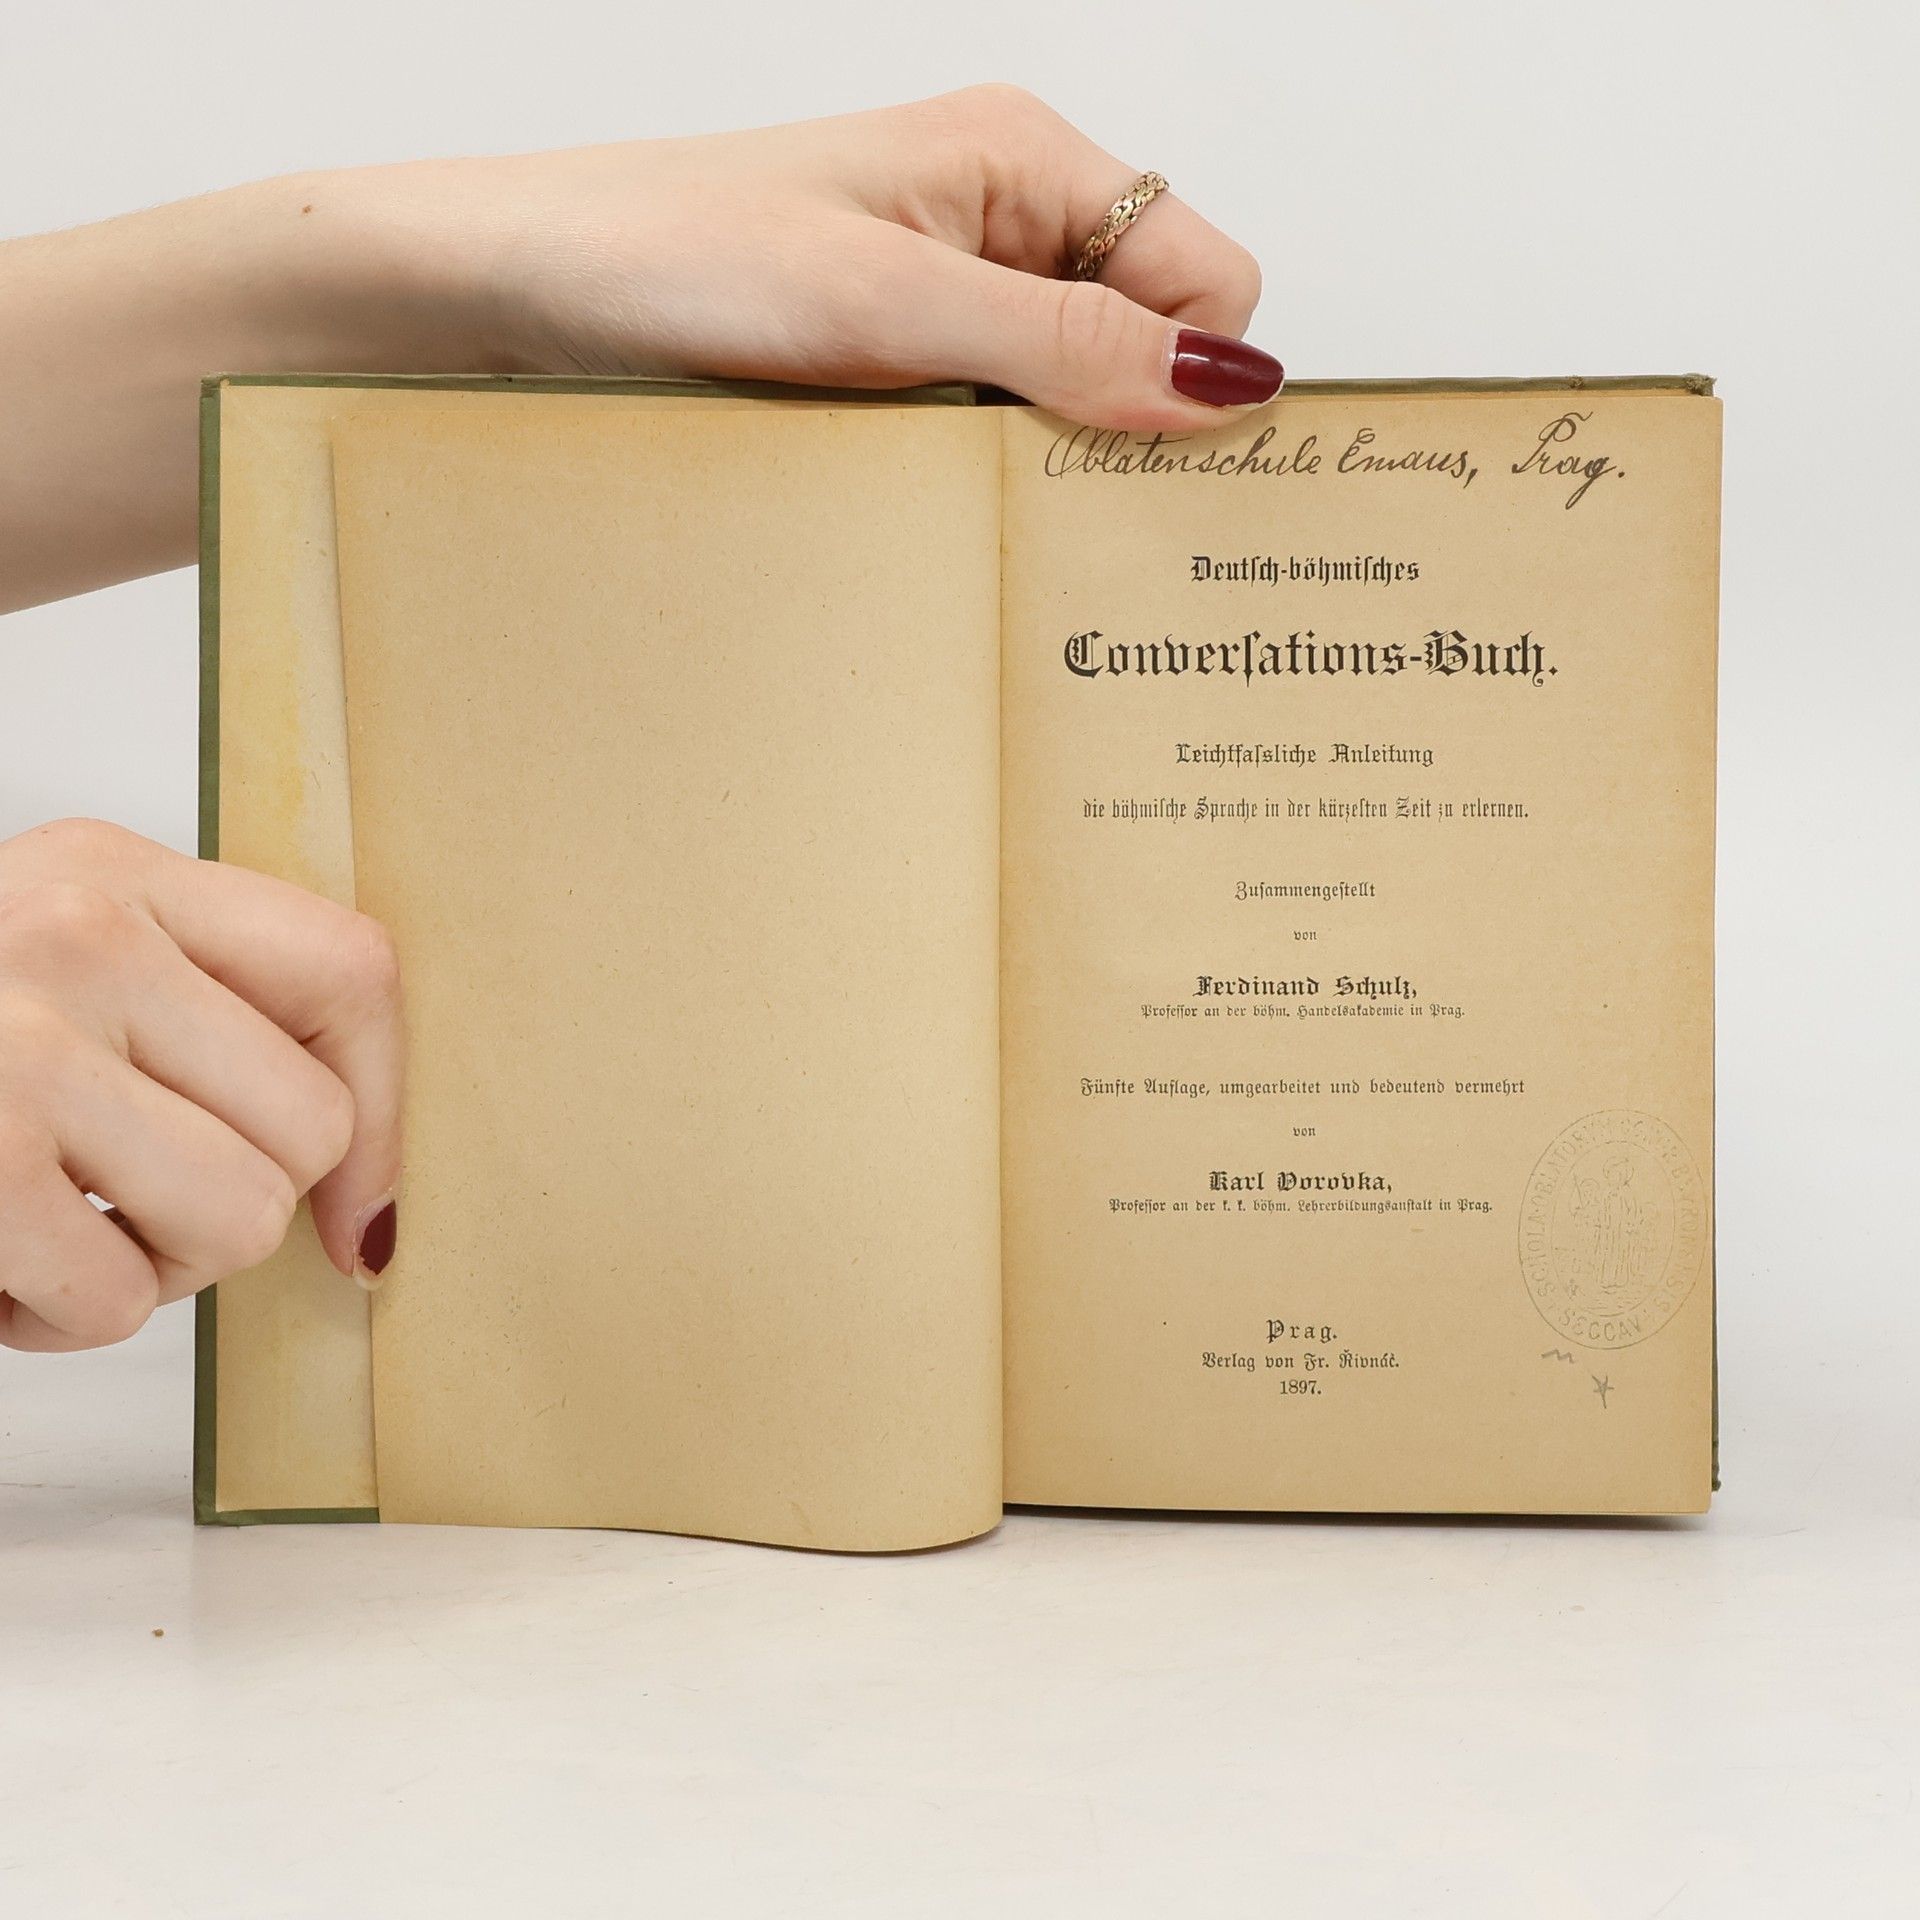 Oblatenschule Emaus, Prag.
Deutſch-böhmiſches
Converſations-Buch.
Leichtfaſsliche Anleitung
die böhmiſche Sprache in der kürzeſten Zeit zu erlernen.
Zuſammengeſtellt
von
Ferdinand Schulz,
Profeſſor an der böhm. Handelsakademie in Prag.
Fünfte Auflage, umgearbeitet und bedeutend vermehrt
von
Karl Vorovka,
Profeſſor an der k. k. böhm. Lehrerbildungsanſtalt in Prag.
SCHOLA OBLATORUM
SECCAV
Prag.
Verlag von Fr. Řivnáč.
1897.